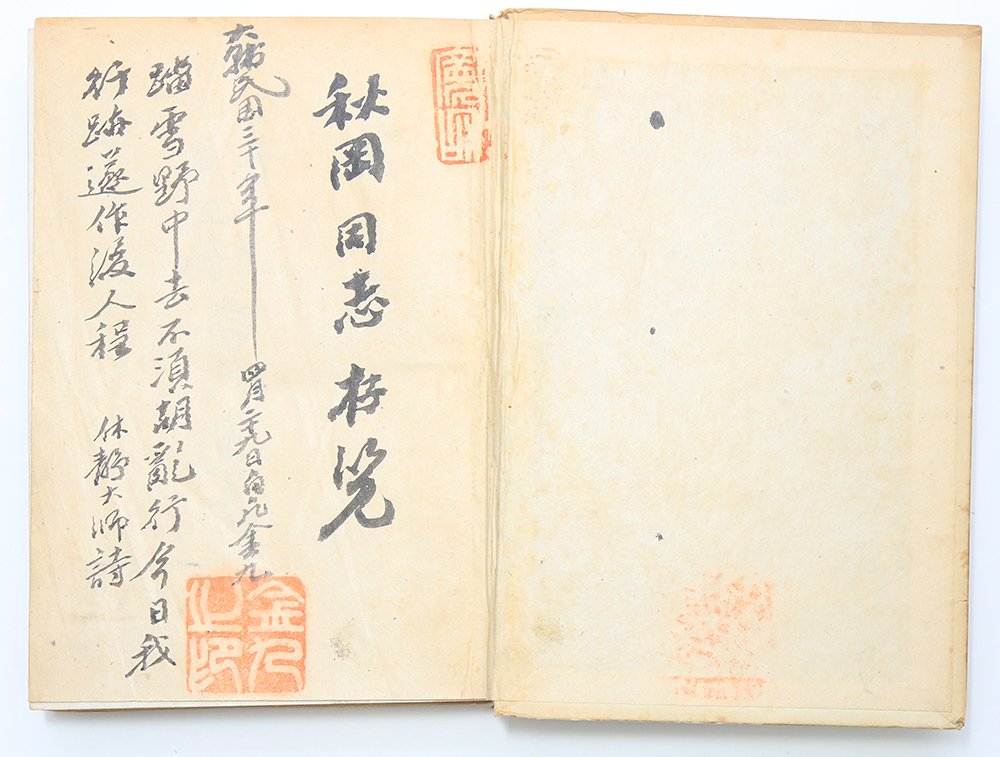 秋岡同志存覽
大韓民国三十年 四月二十九日白凡金九
踏雪野中去不須胡亂行今日我
行跡遂作後人程 休靜大師詩
金九之印